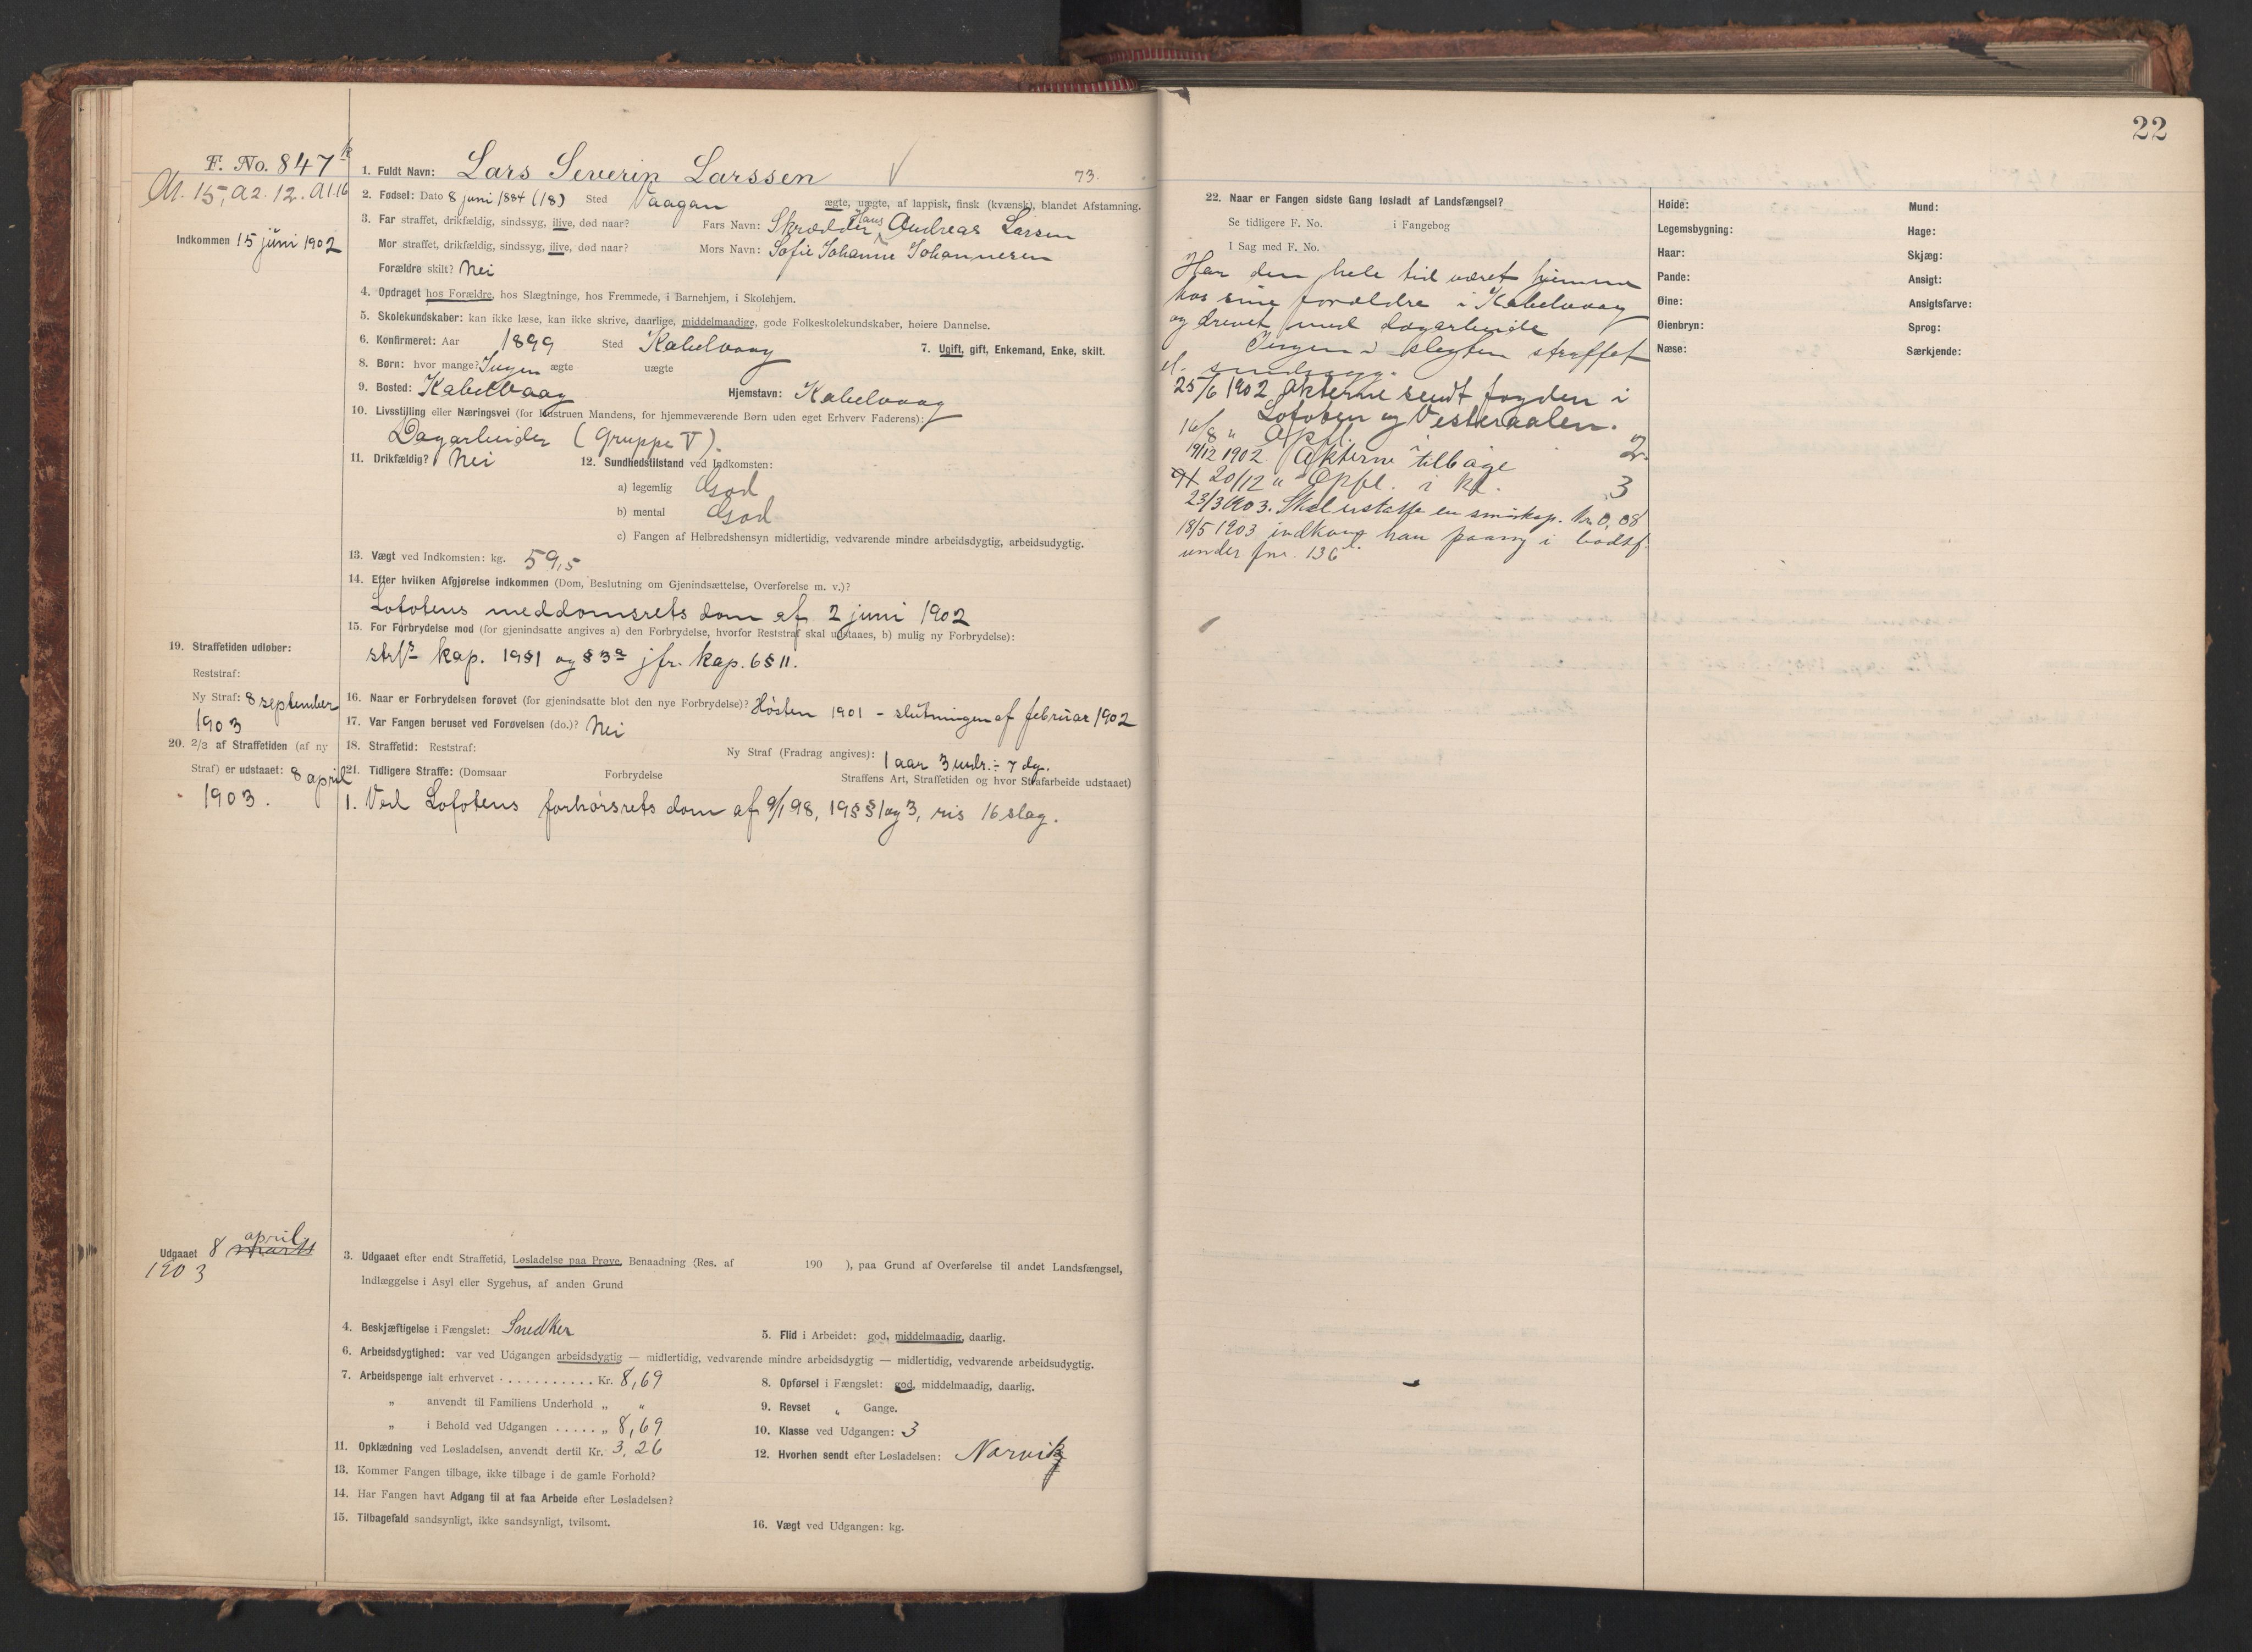 22
F. No. 847
73.
A1. 15, A2. 12. A1.16
Indkommen 15 juni 1902
1. Fuldt Navn: Lars Severin Larssen
2. Fødsel: Dato 8 juni 1884 (18) Sted Vaagan ægte, uægte, af lappisk, finsk (kvænsk), blandet Afstamning.
3. Far straffet, drikfældig, sindssyg, ilive, død naar? Fars Navn: Skrædder Hans Andreas Larsen
Mor straffet, drikfældig, sindssyg, ilive, død naar? Mors Navn: Sofie Johanne Johannesen
Forældre skilt? Nei
4. Opdraget hos Forældre, hos Slægtninge, hos Fremmede, i Barnehjem, i Skolehjem.
5. Skolekundskaber: kan ikke læse, kan ikke skrive, daarlige, middelmaadige, gode Folkeskolekundskaber, høiere Dannelse.
6. Konfirmeret: Aar 1899 Sted Kabelvaag 7. Ugift, gift, Enkemand, Enke, skilt.
8. Børn: hvor mange? Ingen ægte uægte
9. Bosted: Kabelvaag Hjemstavn: Kabelvaag
10. Livsstilling eller Næringsvei (for Hustruen Mandens, for hjemmeværende Børn uden eget Erhverv Faderens):
Dagarbeider (Gruppe V).
11. Drikfældig? Nei 12. Sundhedstilstand ved Indkomsten:
a) legemlig God
b) mental God
c) Fangen af Helbredshensyn midlertidig, vedvarende mindre arbeidsdygtig, arbeidsudygtig.
13. Vægt ved Indkomsten: kg. 59,5
14. Efter hvilken Afgjørelse indkommen (Dom, Beslutning om Gjenindsættelse, Overførelse m. v.)?
Lofotens meddomsrets dom af 2 juni 1902
15. For Forbrydelse mod (for gjenindsatte angives a) den Forbrydelse, hvorfor Reststraf skal udstaaes, b) mulig ny Forbrydelse):
kap. 19§1 og §3a jfr. kap. 6§11.
19. Straffetiden udløber:
Reststraf:
Ny Straf: 8 september
1903
16. Naar er Forbrydelsen forøvet (for gjenindsatte blot den nye Forbrydelse)? Høsten 1901 - slutningen af februar 1902
17. Var Fangen beruset ved Forøvelsen (do.)? Nei
18. Straffetid: Reststraf: Ny Straf (Fradrag angives): 1 aar 3 mdr. ÷ 7 dg.
20. 2/3 af Straffetiden (af ny
Straf) er udstaaet: 8 april
1903.
21. Tidligere Straffe: (Domsaar Forbrydelse Straffens Art, Straffetiden og hvor Strafarbeide udstaaet)
1. Ved Lofotens forhørsrets dom af 9/1 98, 19§§1 og 3, ris 16 slag.
Udgaaet 8 april
1903
3. Udgaaet efter endt Straffetid, Løsladelse paa Prøve, Benaadning (Res. af 190 ), paa Grund af Overførelse til andet Landsfængsel,
Indlæggelse i Asyl eller Sygehus, af anden Grund
4. Beskjæftigelse i Fængslet: Snedker 5. Flid i Arbeidet: god, middelmaadig, daarlig.
6. Arbeidsdygtighed: var ved Udgangen arbeidsdygtig — midlertidig, vedvarende mindre arbeidsdygtig — midlertidig, vedvarende arbeidsudygtig.
7. Arbeidspenge ialt erhvervet . . . . . . . . . . . Kr. 8,69 8. Opførsel i Fængslet: god, middelmaadig, daarlig.
„ anvendt til Familiens Underhold „ „ 9. Revset „ Gange.
„ i Behold ved Udgangen . . . . . „ 8,69 10. Klasse ved Udgangen: 3
11. Opklædning ved Løsladelsen, anvendt dertil Kr. 3,26 12. Hvorhen sendt efter Løsladelsen: Narvik
13. Kommer Fangen tilbage, ikke tilbage i de gamle Forhold?
14. Har Fangen havt Adgang til at faa Arbeide efter Løsladelsen?
15. Tilbagefald sandsynligt, ikke sandsynligt, tvilsomt. 16. Vægt ved Udgangen: kg.
22. Naar er Fangen sidste Gang løsladt af Landsfængsel?
Se tidligere F. No. i Fangebog
I Sag med F. No.
Har den hele tid været hjemme
hos sine forældre i Kabelvaag
og drevet med dagarbeide
Ingen i slegten straffet
el. sindssyg.
25/6 1902 Akterne sendt fogden i
Lofoten og Vesteraalen.
16/8 " Opfl. i 2.
19/12 1902 Akterne tilbage
20/12 " Opfl. i kl. 3
23/3 1903. Skal erstatte en Kr. 0,08
18/5 1903 indkom han paany i bodsf.
under fnr. 136
Høide:
Legemsbygning:
Haar:
Pande:
Øine:
Øienbryn:
Næse:
Mund:
Hage:
Skjæg:
Ansigt:
Ansigtsfarve:
Sprog:
Særkjende: